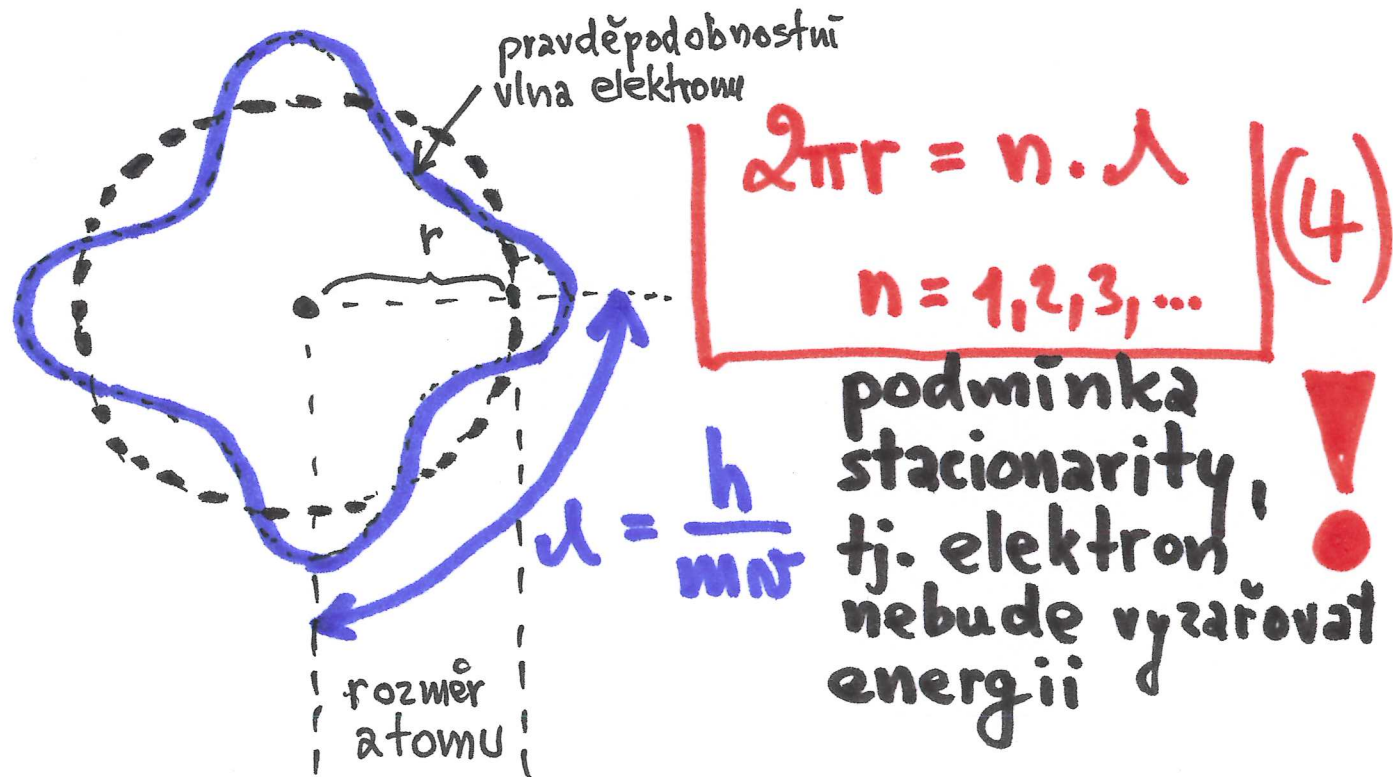 pravděpodobnostní
vlna elektronu
r
2πr = n. λ
n = 1,2,3,...
(4)
λ = h/mv
podmínka
stacionarity,
tj. elektron
nebude vyzařovat
energii
!
rozměr
atomu